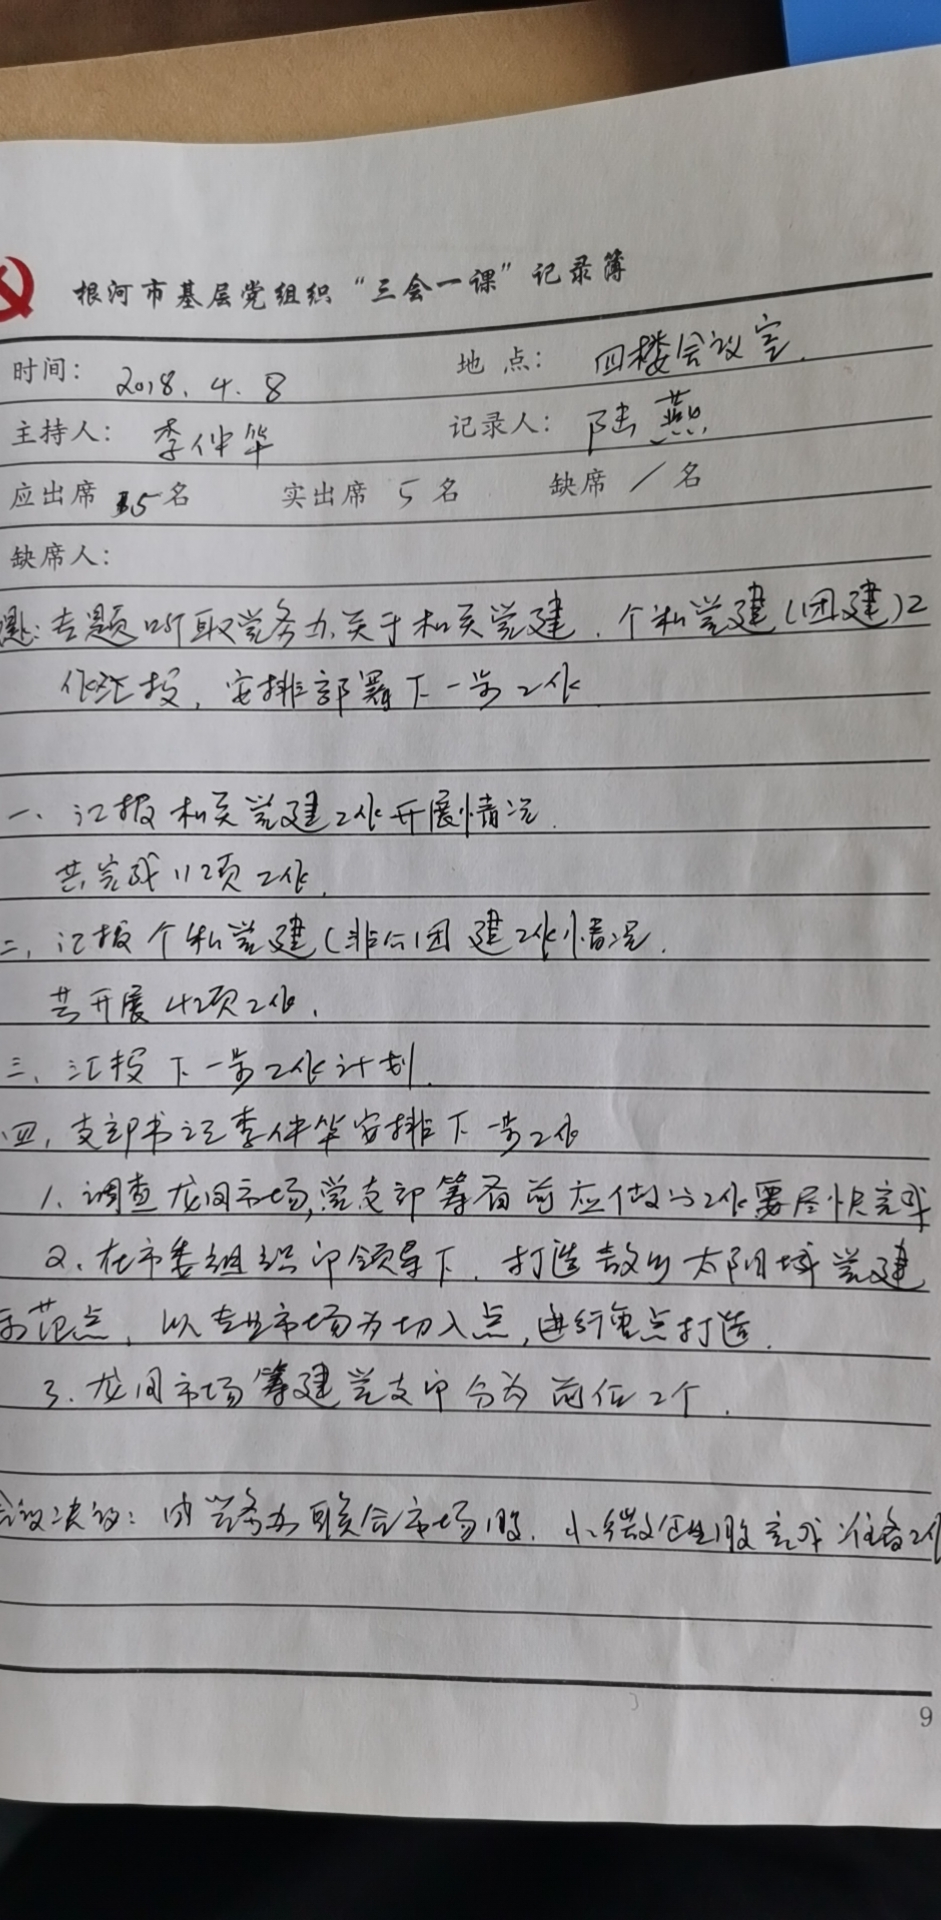 根河市基层党组织“三会一课”记录簿
时间： 2018.4.8 地点： 四楼会议室.
主持人： 季仲华 记录人： 陆燕
应出席 5名 实出席 5名 缺席 / 名
缺席人：
题：专题听取党务办关于机关党建、个私党建（团建）工
作汇报，安排部署下一步工作
一、汇报机关党建工作开展情况.
共完成11项工作.
二、汇报个私党建（非公）团建工作情况.
共开展4项工作.
三、汇报下一步工作计划.
四，支部书记季仲华安排下一步工作
1、调查龙凤市场，党支部筹备前应做的工作要尽快完成
2、在市委组织部领导下，打造敖乡太阳城党建
示范点，以专业市场为切入点，进行重点打造.
3、市场筹建党支部分为前任2个.
会议决议：由党务办联合市场股、小微企业股完成准备工作
9